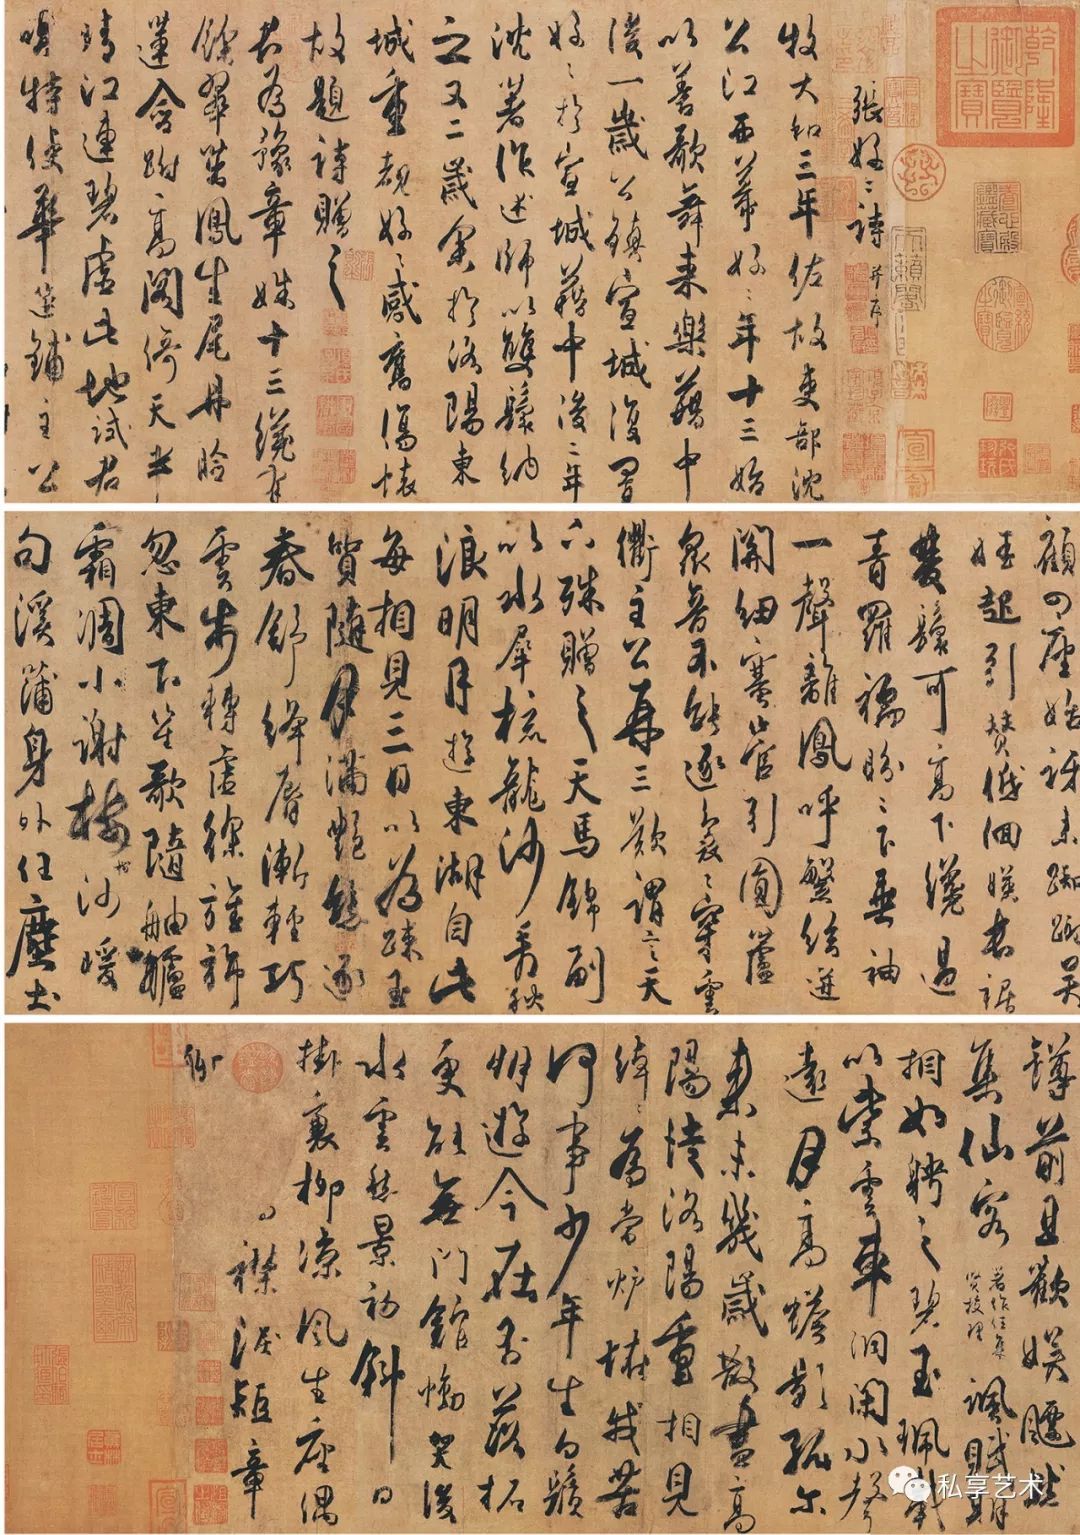 乾隆御覽之寶
張好〻詩 并序
牧大和三年佐故吏部沈
公江西幕好〻年十三始
以善歌舞来樂籍中
後一歲公鎮宣城復置
好〻於宣城籍中後二年
沈著作述師以雙鬟納
之又二歲余於洛陽東
城重覩好〻感舊傷懷
故題詩贈之
君為豫章姝十三纔有
餘翠茁鳳生尾丹臉
蓮含跗高閣倚天半
晴江連碧虛此地試君
唱特使華筵鋪主公
顧四座始訝来踟蹰吳
娃起引贊低佪映長裾
雙鬟可高下纔過
青羅襦盼〻下垂袖
一聲離鳳呼繁絃迸
關紐塞管引圓蘆
衆音不能逐裊〻穿雲
衢主公再三歎謂言天
下殊贈之天馬錦副
以水犀梳龍沙看秋
浪明月遊東湖自此
每相見三日以為疎玉
質隨月滿艷態逐
春舒絳脣漸輕巧
雲步轉虛徐旌旆
忽東下笙歌隨舳艫
霜凋小謝樹沙暖
句溪蒲身外任塵土
罇前且歡娛飄然
集仙客 著作任集賢校理 諷賦期
相如聘之碧玉珮載
以紫雲車洞閉水聲
遠月高蟾影孤尔
来未幾歲散盡高
陽徒洛陽重相見
綽〻為當壚怪我苦
何事少年生白鬚
朋遊今在否落拓
更能無門館慟哭後
水雲愁景初斜日
掛衰柳涼風生座隅
襟淚短章
聊
私享艺术